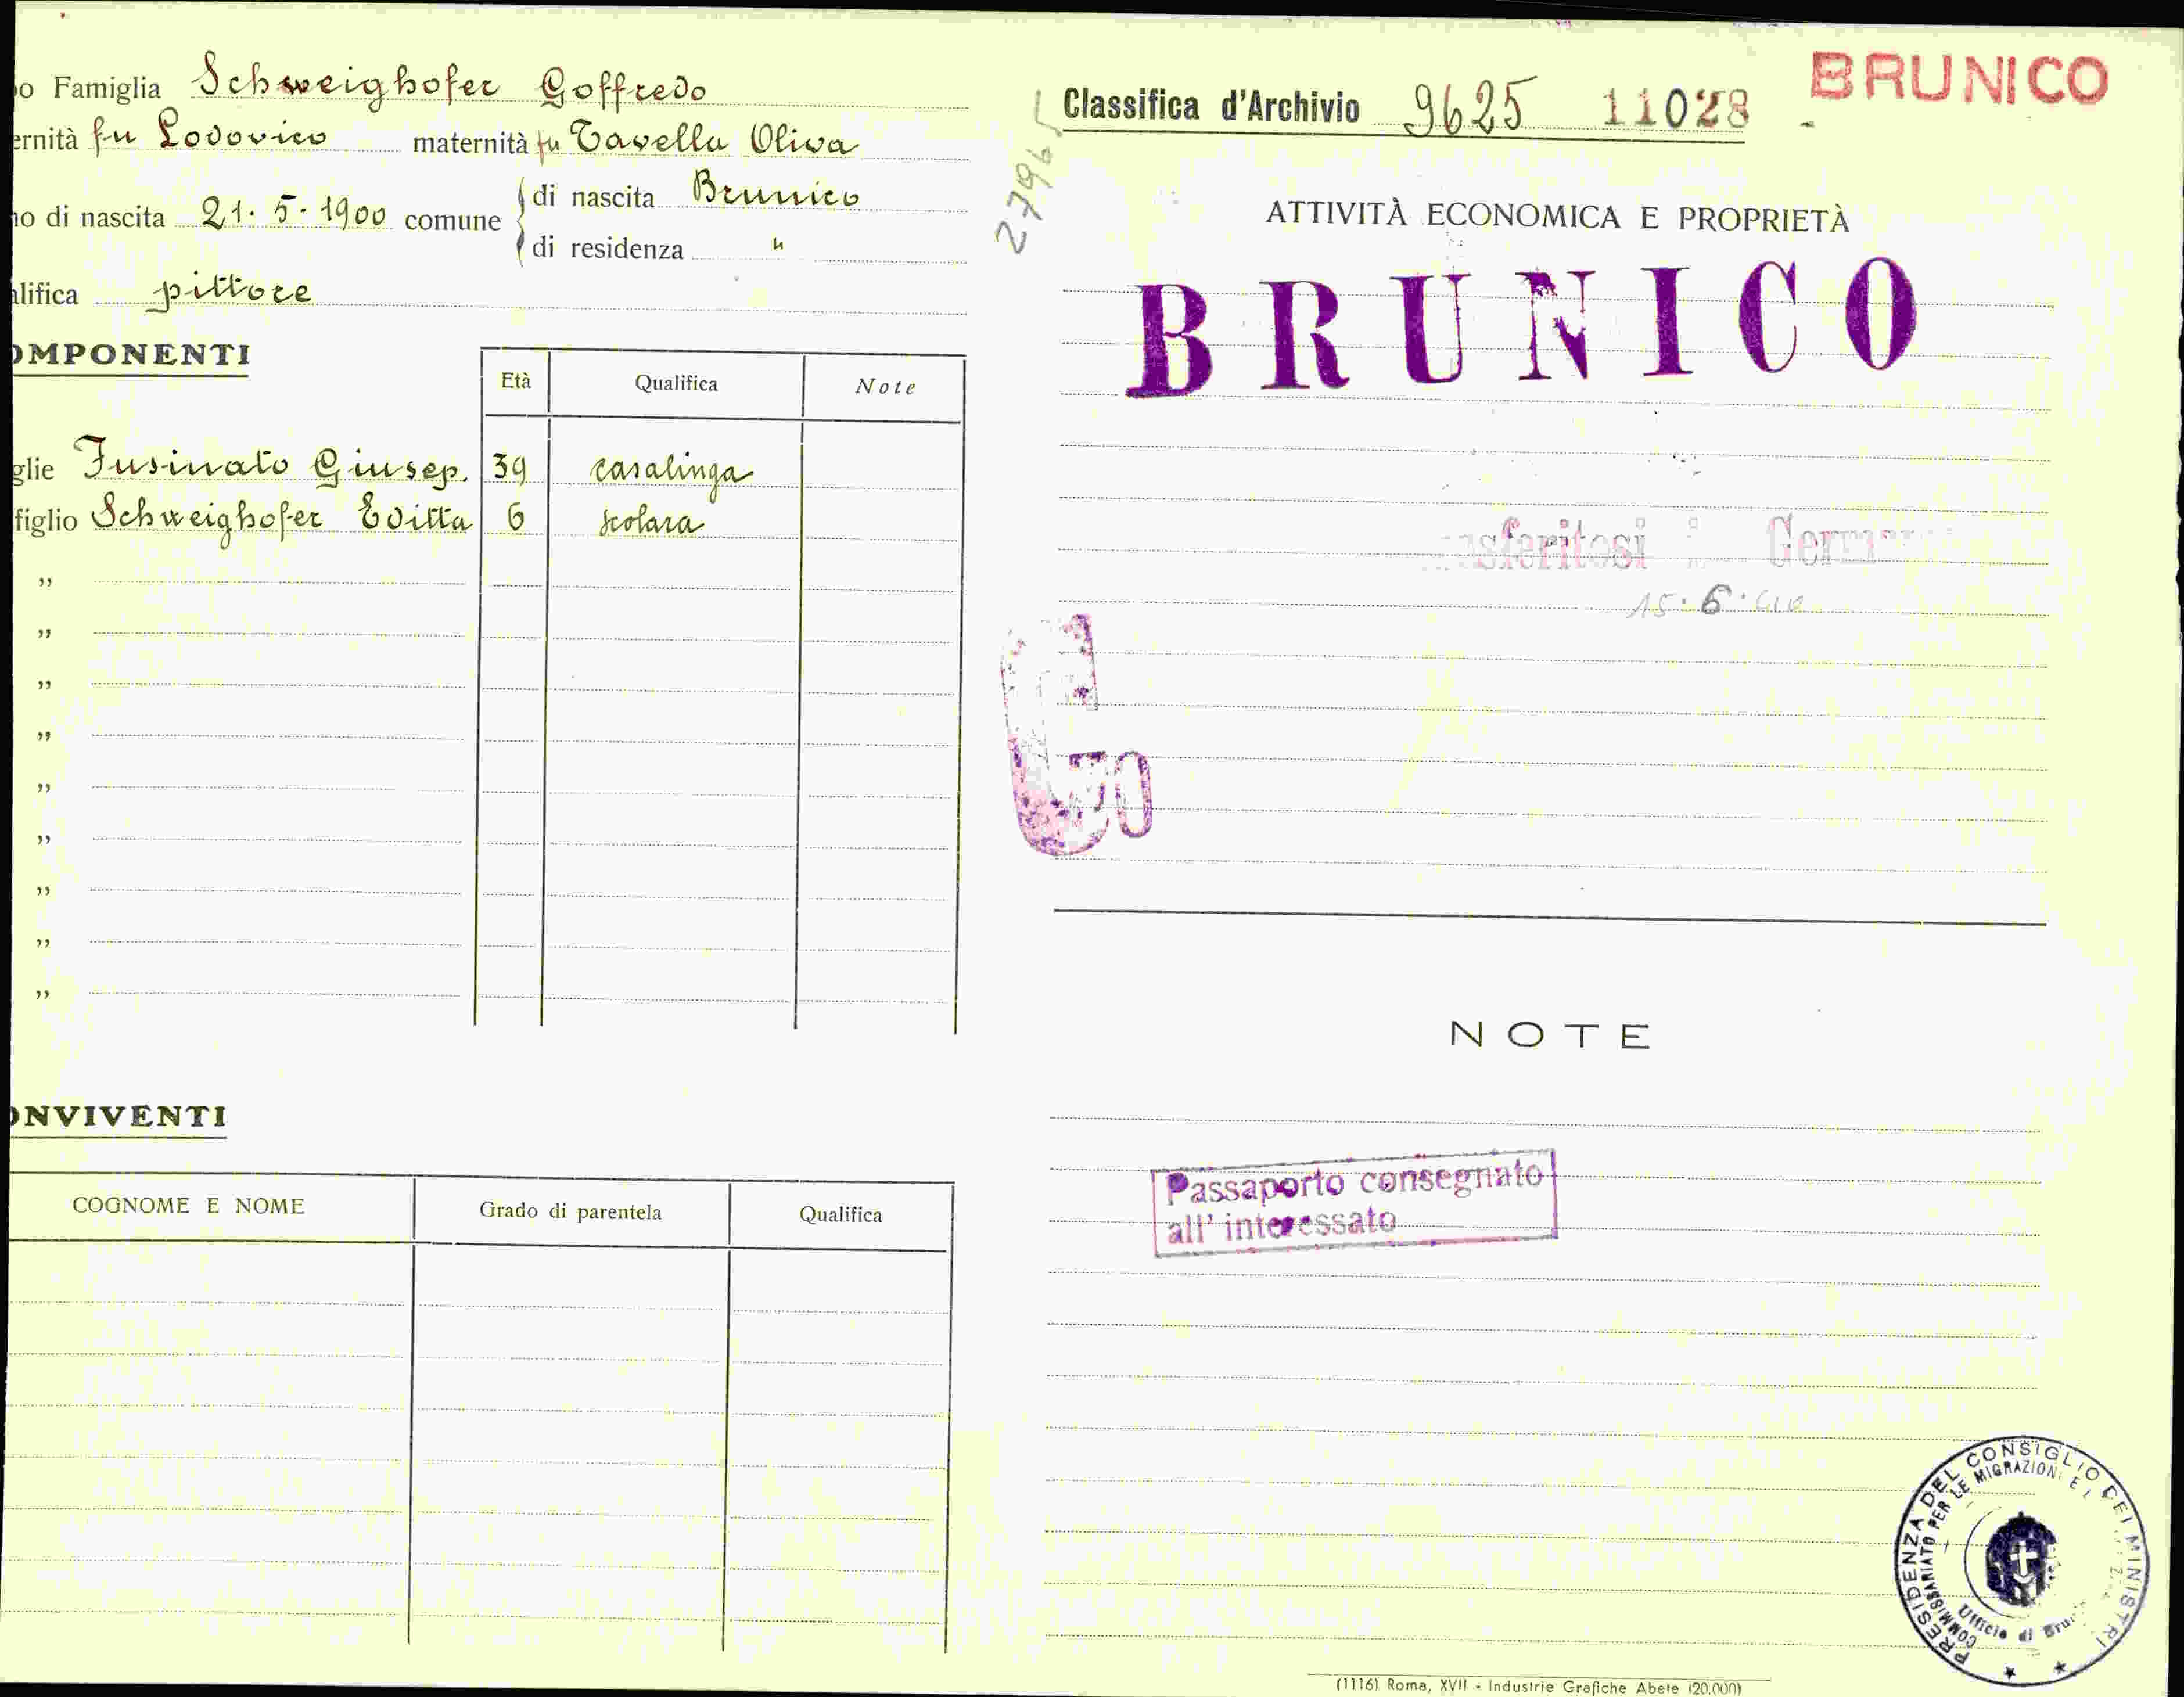 o Famiglia Schweighofer Goffredo
ernità fu Lodovico maternità fu Tavella Oliva
no di nascita 21·5·1900 comune
di nascita Brunico
di residenza "
alifica pittore
OMPONENTI
Età Qualifica Note
glie Fusinato Giusep. 39 casalinga
figlio Schweighofer Editta 6 scolara
"
"
"
"
"
"
"
"
"
ONVIVENTI
COGNOME E NOME Grado di parentela Qualifica
27965
Classifica d'Archivio 9625 11028
BRUNICO
ATTIVITÀ ECONOMICA E PROPRIETÀ
BRUNICO
sferitosi Germ
15·6·
NOTE
Passaporto consegnato
all'interessato
PRESIDENZA DEL CONSIGLIO DEI MINISTRI
COMMISSARIATO PER LE MIGRAZIONI E L
Ufficio di Bru
(1116) Roma, XVII - Industrie Grafiche Abete (20.000)